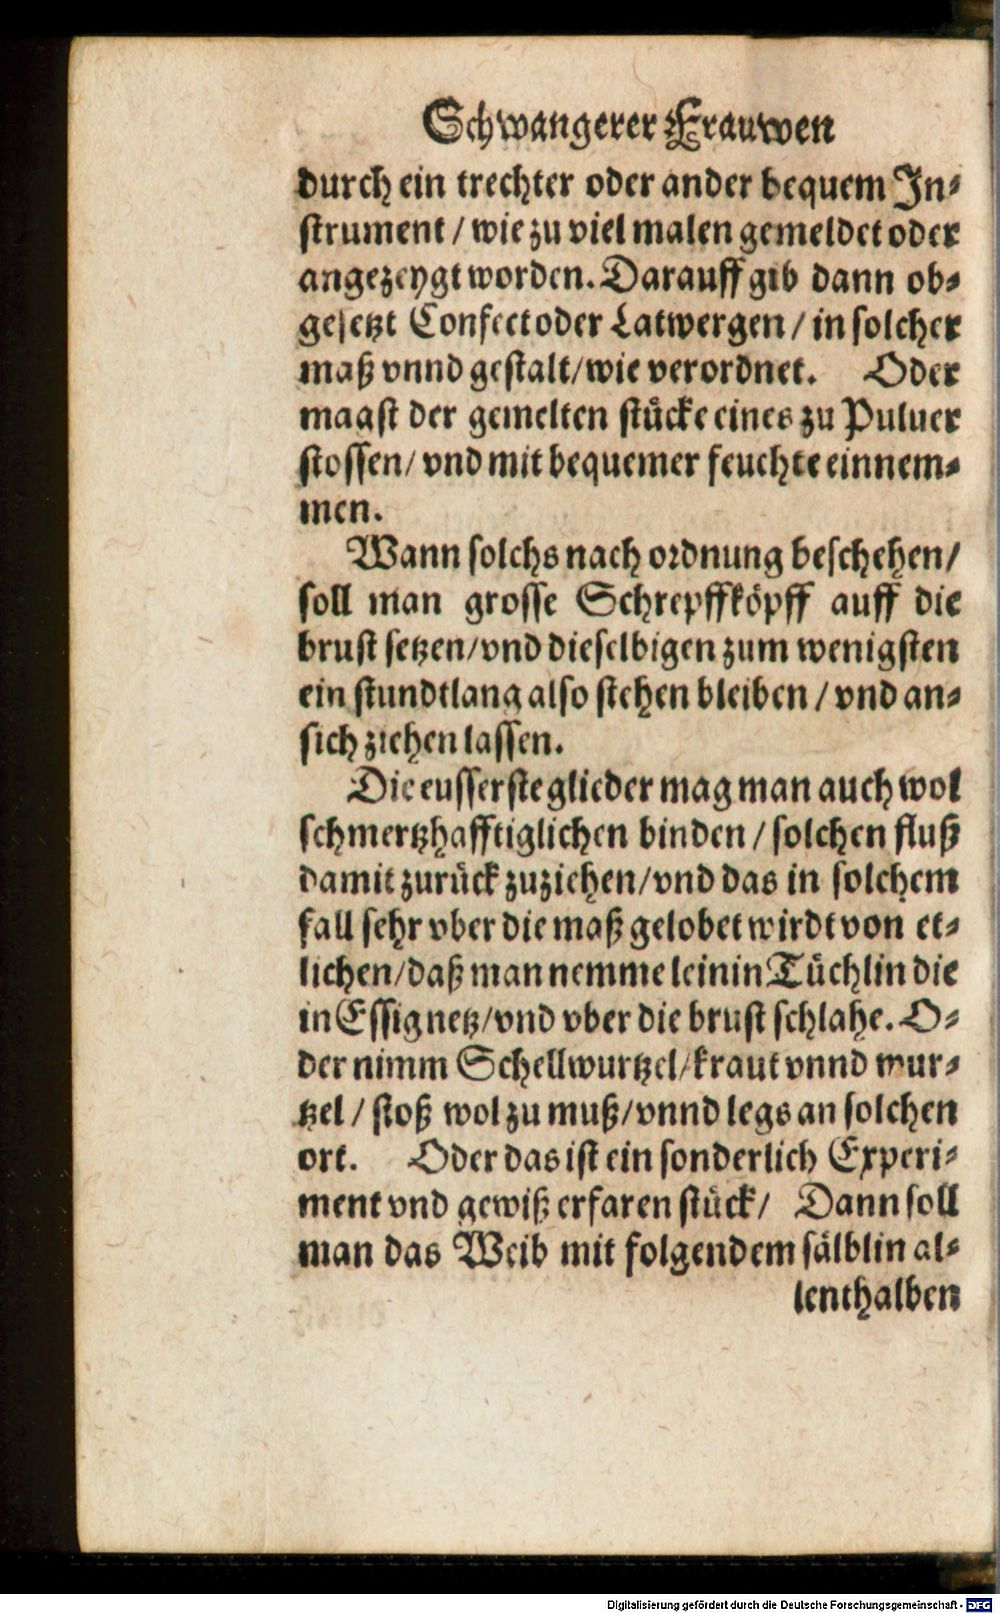 Schwangerer Frauwen
durch ein trechter oder ander bequem In⸗
strument / wie zu viel malen gemeldet oder
angezeygt worden. Darauff gib dann ob⸗
gesetzt Confect oder Latwergen / in solcher
maß vnnd gestalt / wie verordnet. Oder
magst der gemelten stücke eines zu Puluer
stossen / vnd mit bequemer feuchte einnem⸗
men.
Wann solchs nach ordnung beschehen /
soll man grosse Schrepffköpff auff die
brust setzen / vnd dieselbigen zum wenigsten
ein stundtlang also stehen bleiben / vnd an⸗
sich ziehen lassen.
Die eusserste glieder mag man auch wol
schmertzhafftiglichen binden / solchen fluß
damit zurück zuziehen / vnd das in solchem
fall sehr vber die maß gelobet wirdt von et⸗
lichen / daß man nemme leinin Tüchlin die
in Essig netz / vnd vber die brust schlahe. O⸗
der nimm Schellwurtzel / kraut vnnd wur⸗
tzel / stoß wol zu muß / vnnd legs an solchen
ort. Oder das ist ein sonderlich Experi⸗
ment vnd gewiß erfaren stück / Dann soll
man das Weib mit folgendem sälblin al⸗
lenthalben
Digitalisierung gefördert durch die Deutsche Forschungsgemeinschaft - DFG